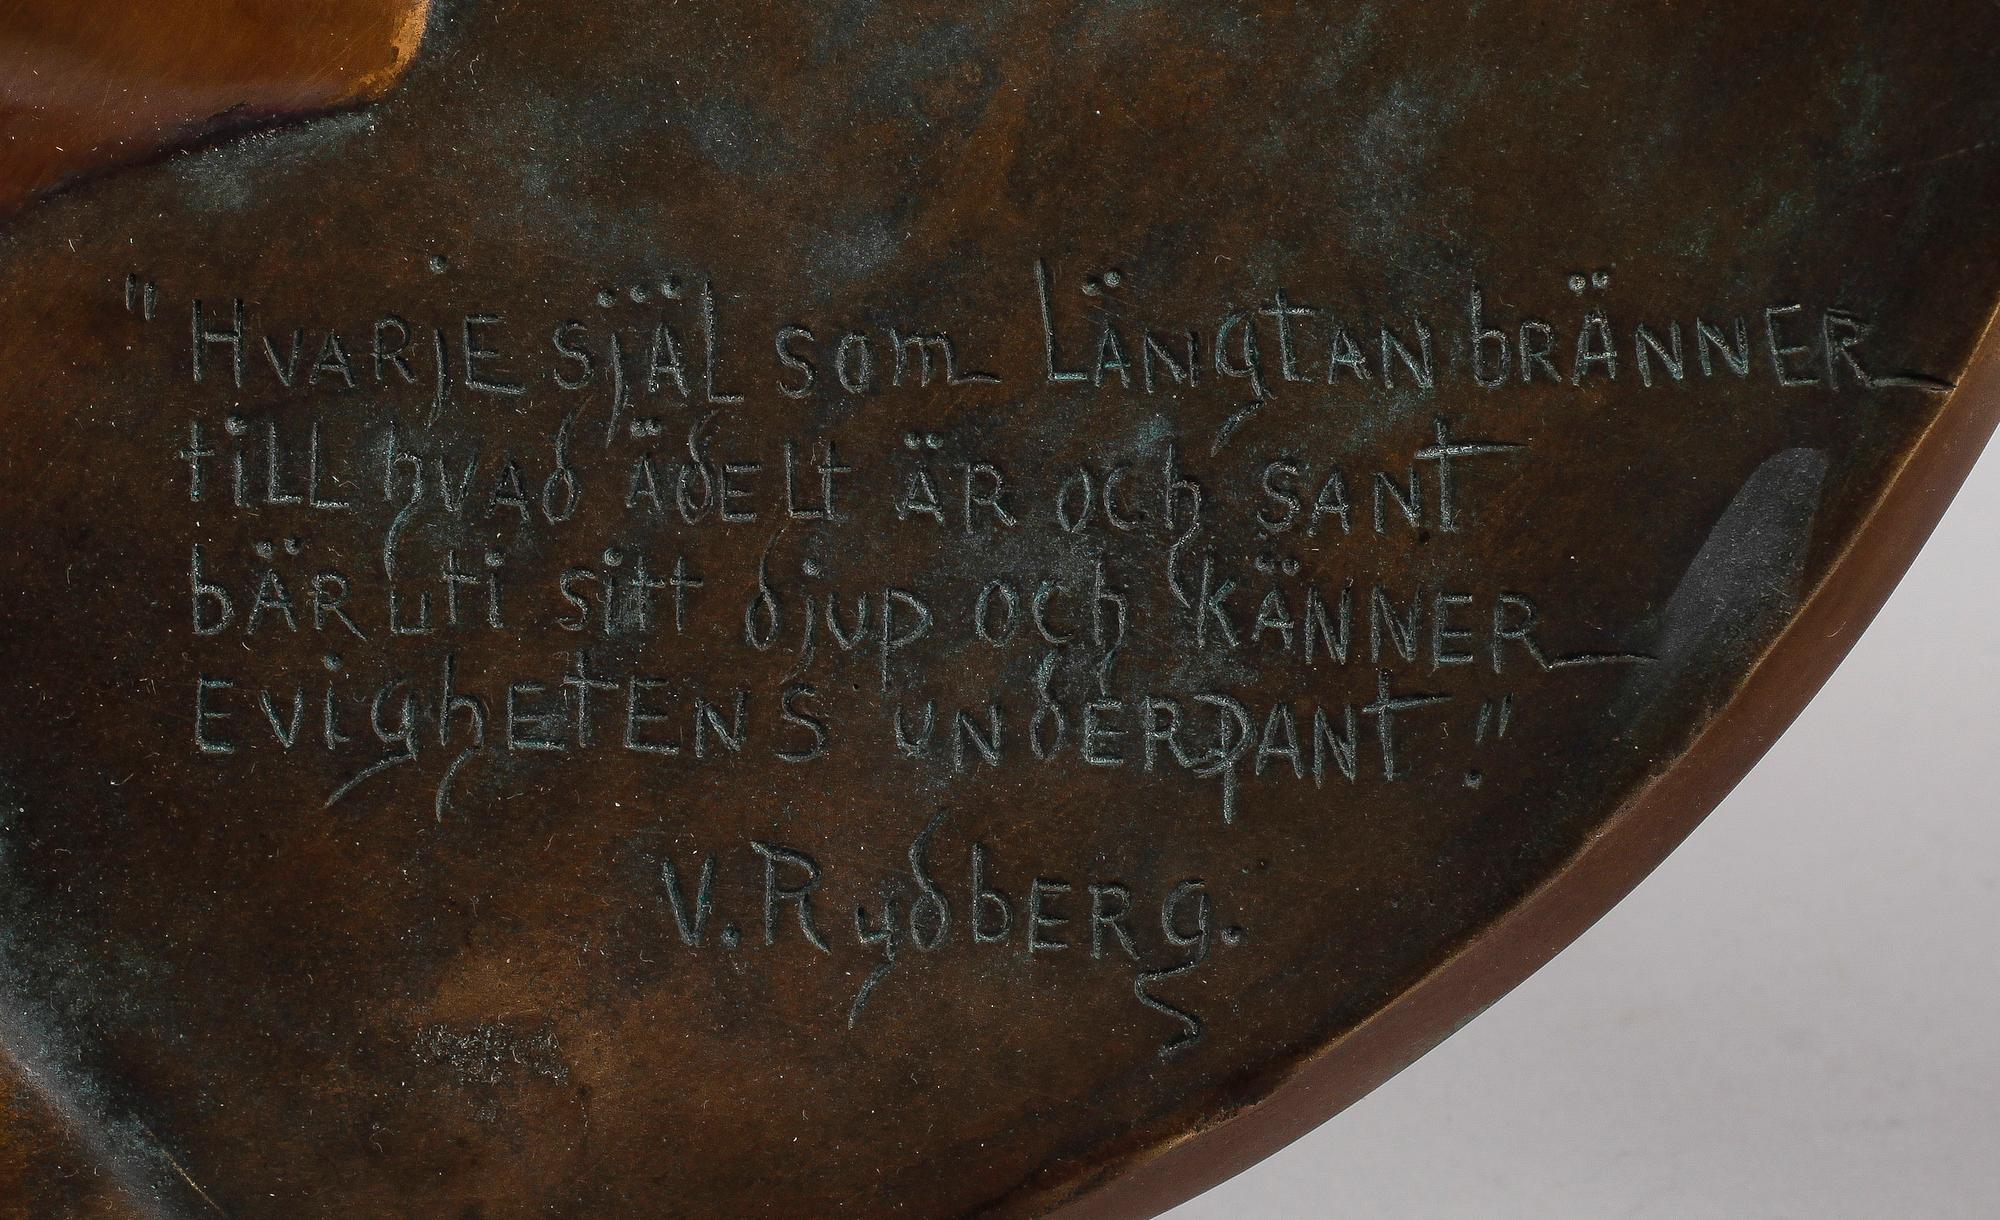 "Hvarje själ som längtan bränner
till hvad ädelt är och sant
bär uti sitt djup och känner
evighetens underpant."
V. Rydberg.